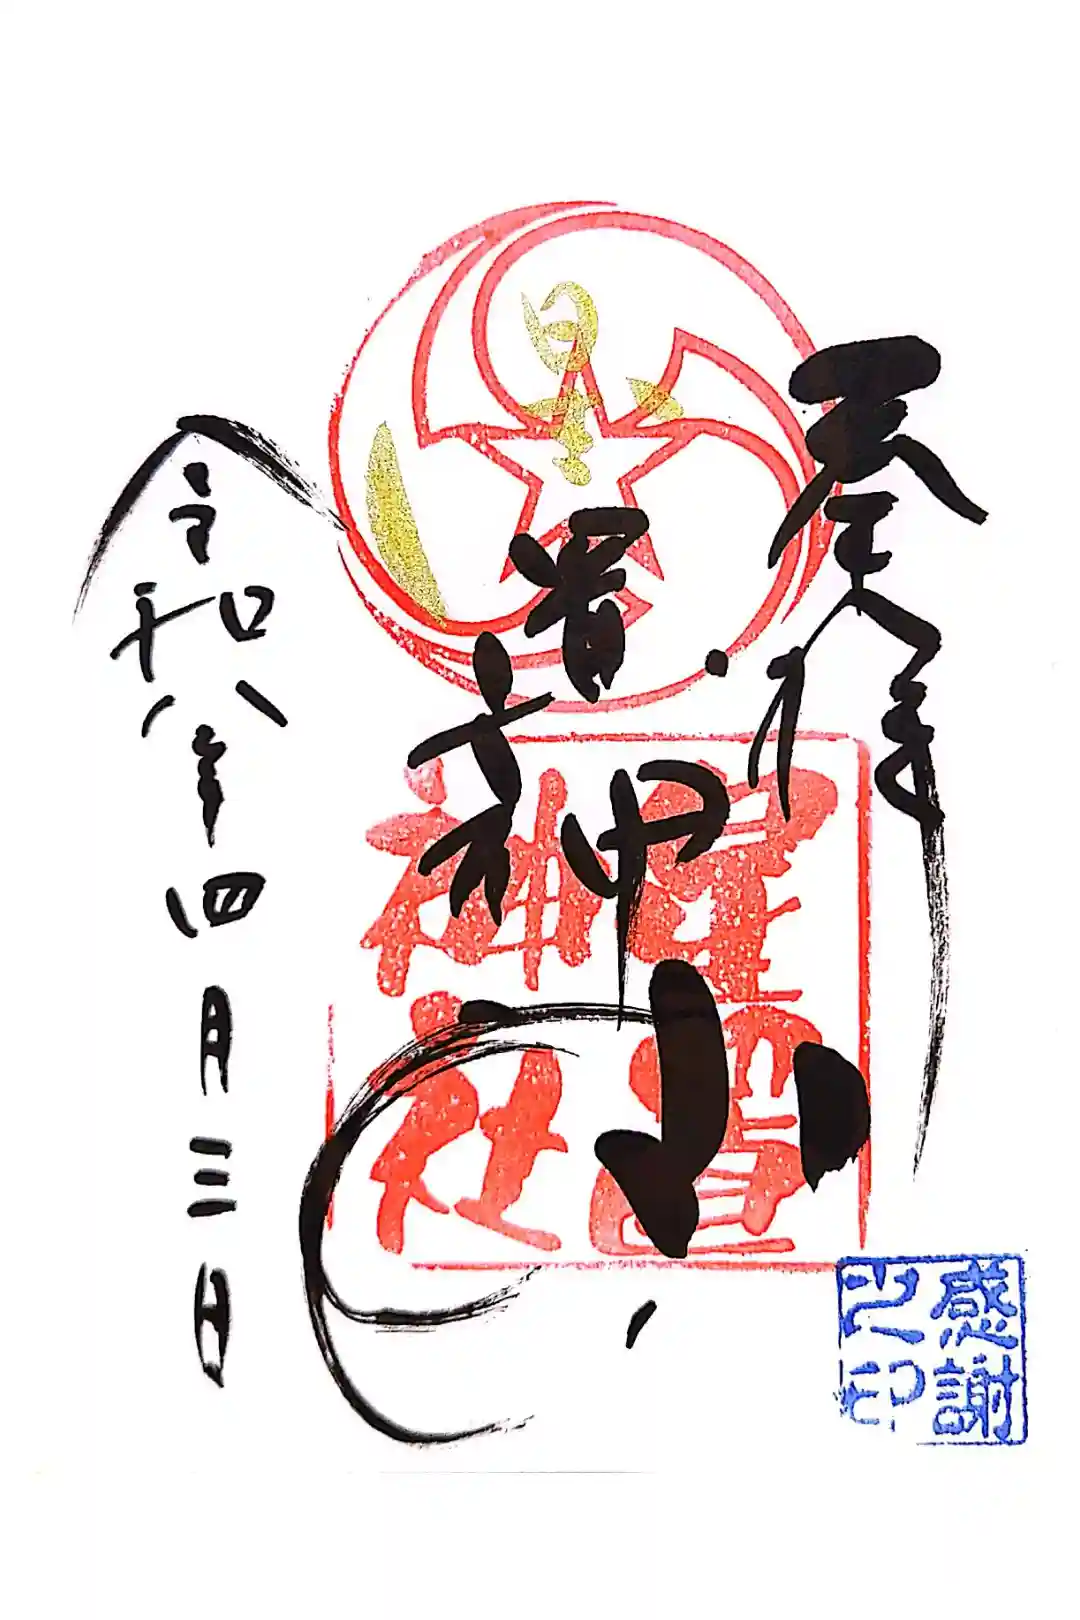 奉拝
星置神社
星置
神社
令和八年四月三日
感謝
之印